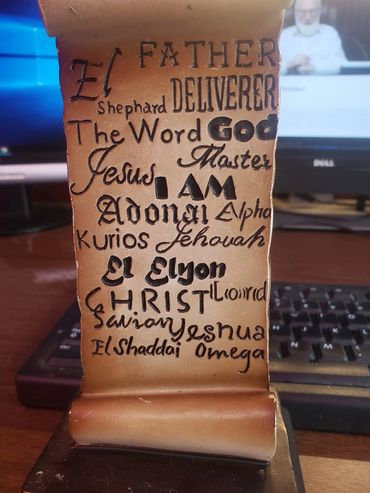 El FATHER
Shephard DELIVERER
The Word God
Jesus Master
I AM
Adonai Alpha
Kurios Jehovah
El Elyon
CHRIST
Savior Yeshua
El Shaddai Omega
DELL